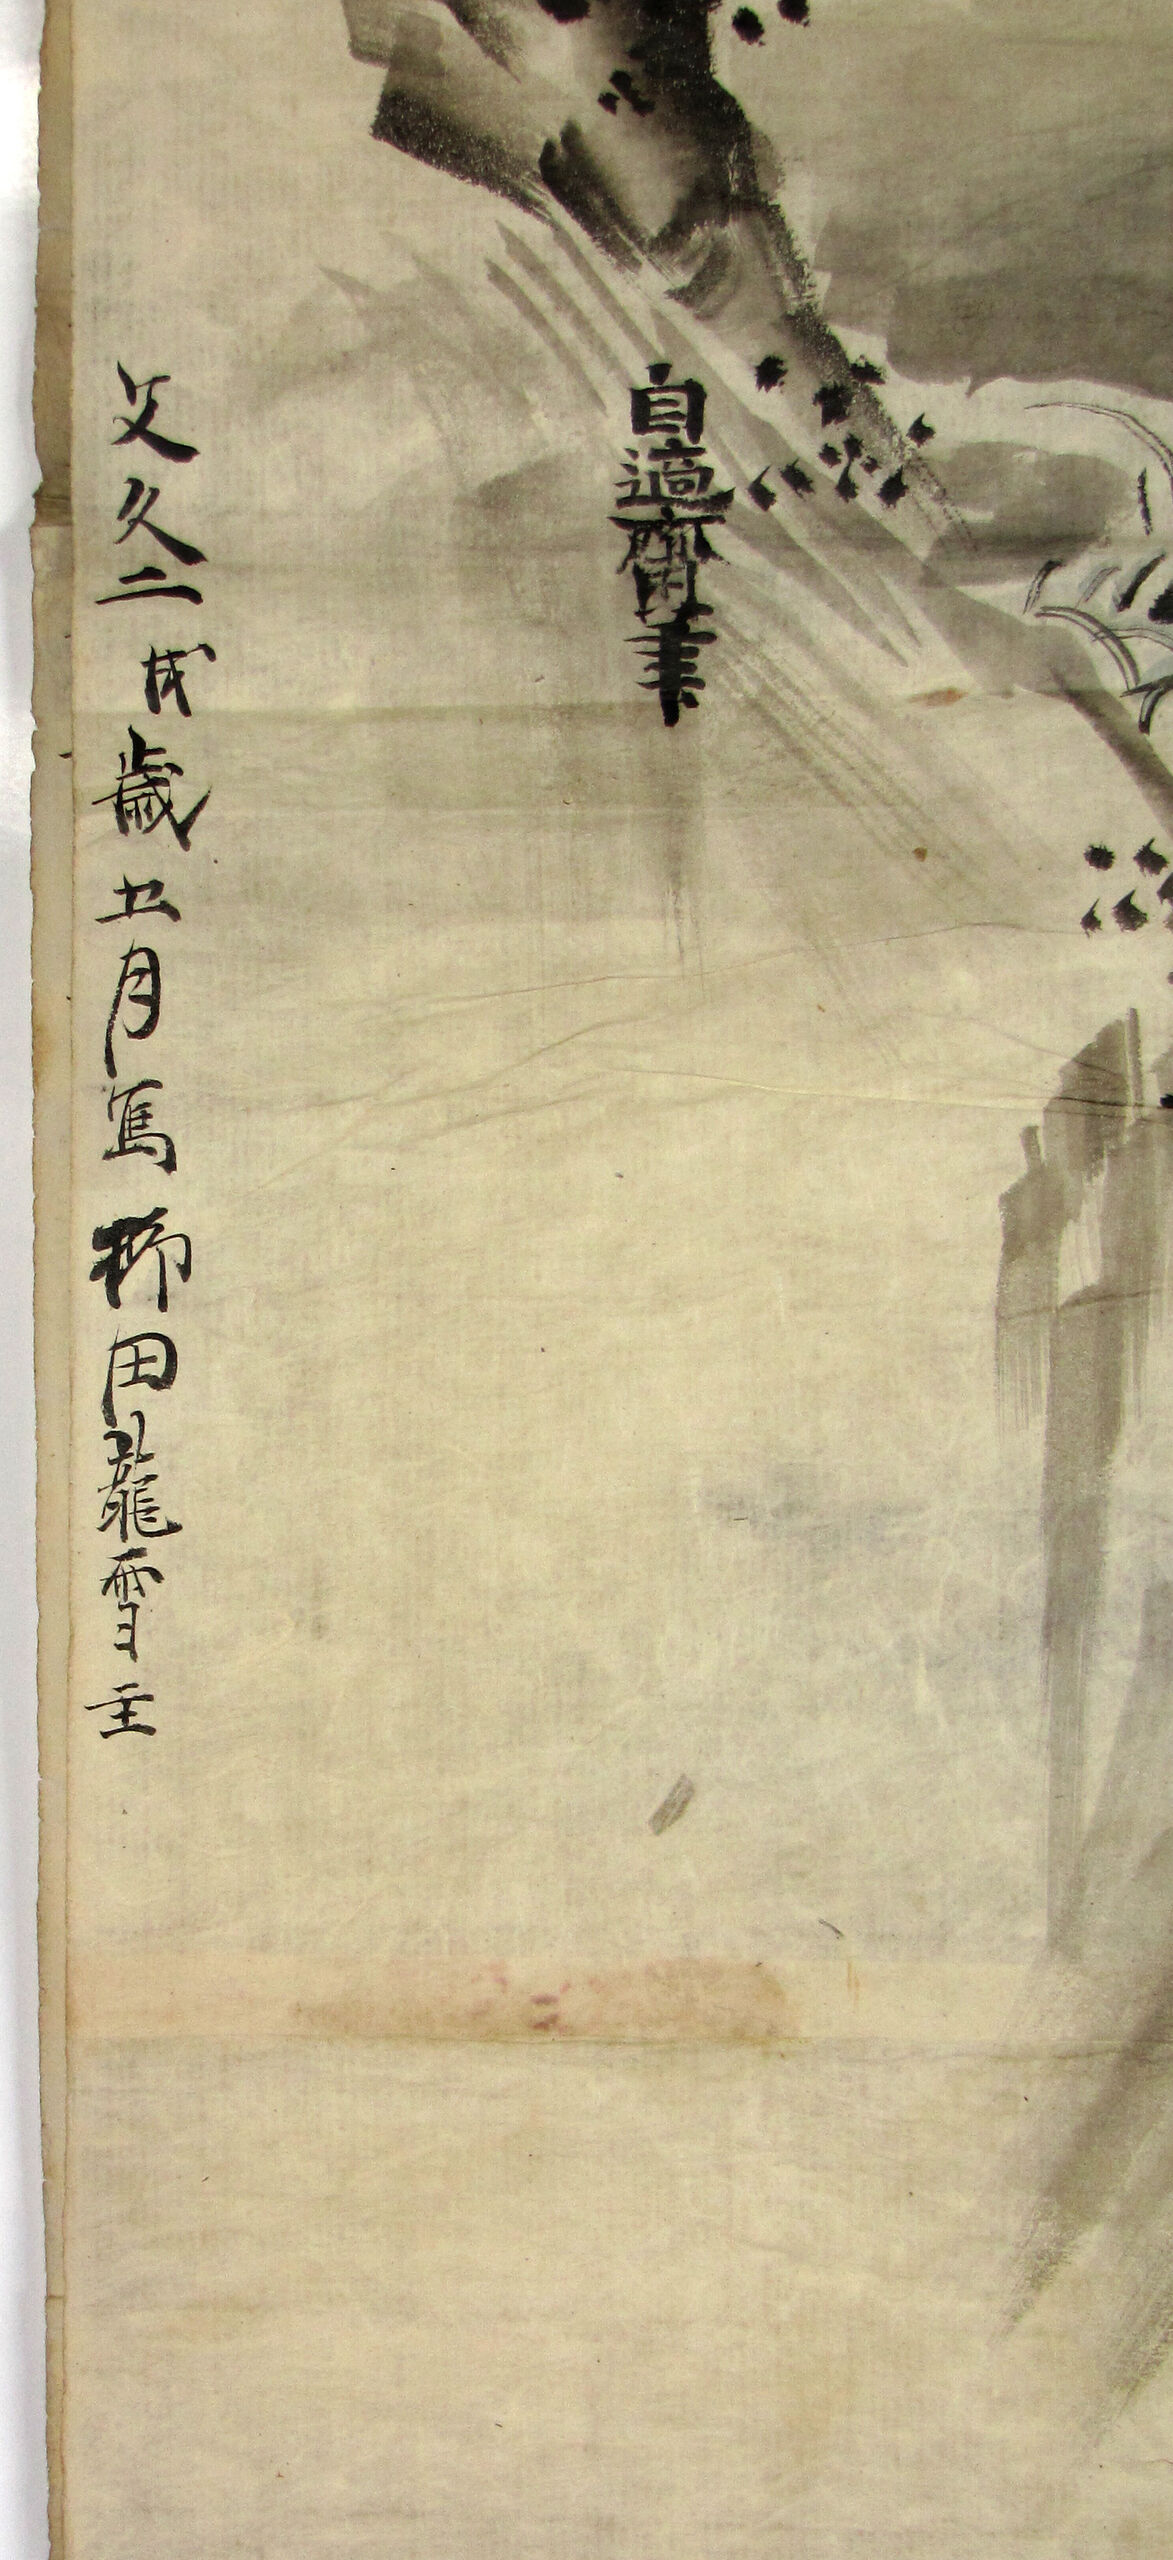 自適齋筆
文久二戌歳五月写 柳田龍雪主